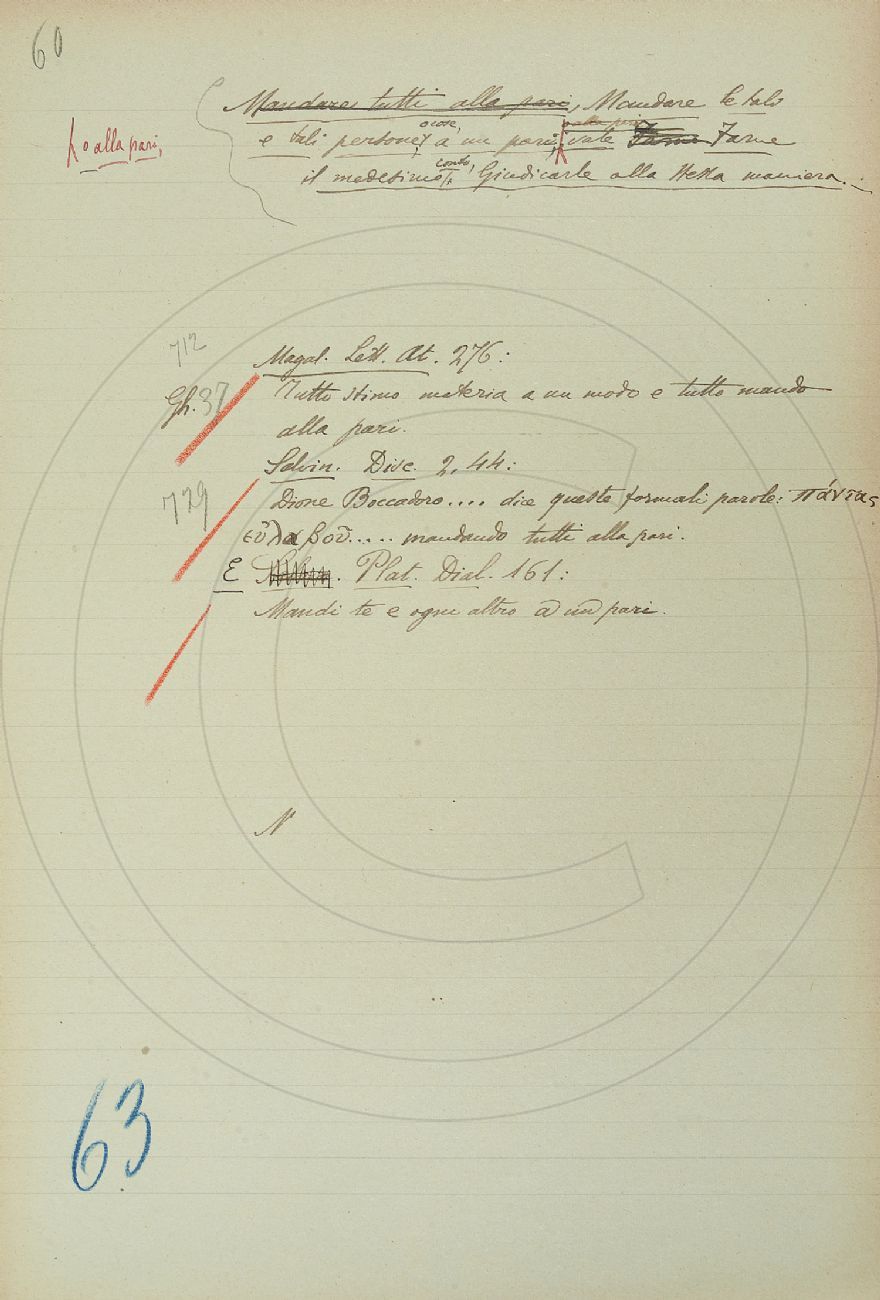 60
Mandare tutti alla pari, Mandare le tali
o alla pari,
o cose,
alla pari
e tali persone, a un pari, vale Farne
conto,
il medesimo Giudicarle alla stessa maniera.
712
Magal. Lett. At. 276:
Gh. 37
Tutto stimo materia a un modo e tutto mando
alla pari.
Salvin. Disc. 2, 44:
779
Dione Boccadoro.... dice queste formali parole: πάντας
εὐλαβοῦ..... mandando tutti alla pari.
E Plat. Dial. 161:
Mandi te e ogni altro a un pari.
N
63